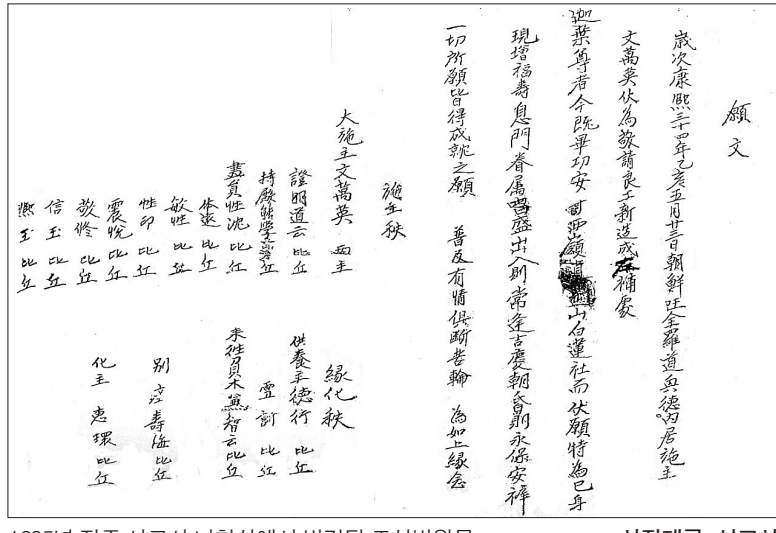 願文
歲次康熙三十四年乙亥五月廿三日朝鮮国全羅道興德內居施主
文萬英伏為敬請良工新造成 補處
迦葉尊者今既畢功安 山白蓮社而伏願特為己身
現增福壽息門眷属昌盛出入則常逢吉慶朝昏 永保安
一切所願皆得成就之願 普及有情俱斷苦輪 為如上緣念
施主秩
大施主文萬英 両主
證明道云 比丘
持殿 學 比丘
畫員性沈 比丘
体遠 比丘
敏性 比丘
性印 比丘
震悅 比丘
敬修 比丘
信玉 比丘
熙玉 比丘
緣化秩
供養主德行 比丘
雪訢 比丘
来往負木 智云 比丘
別座 壽海 比丘
化主 惠環 比丘